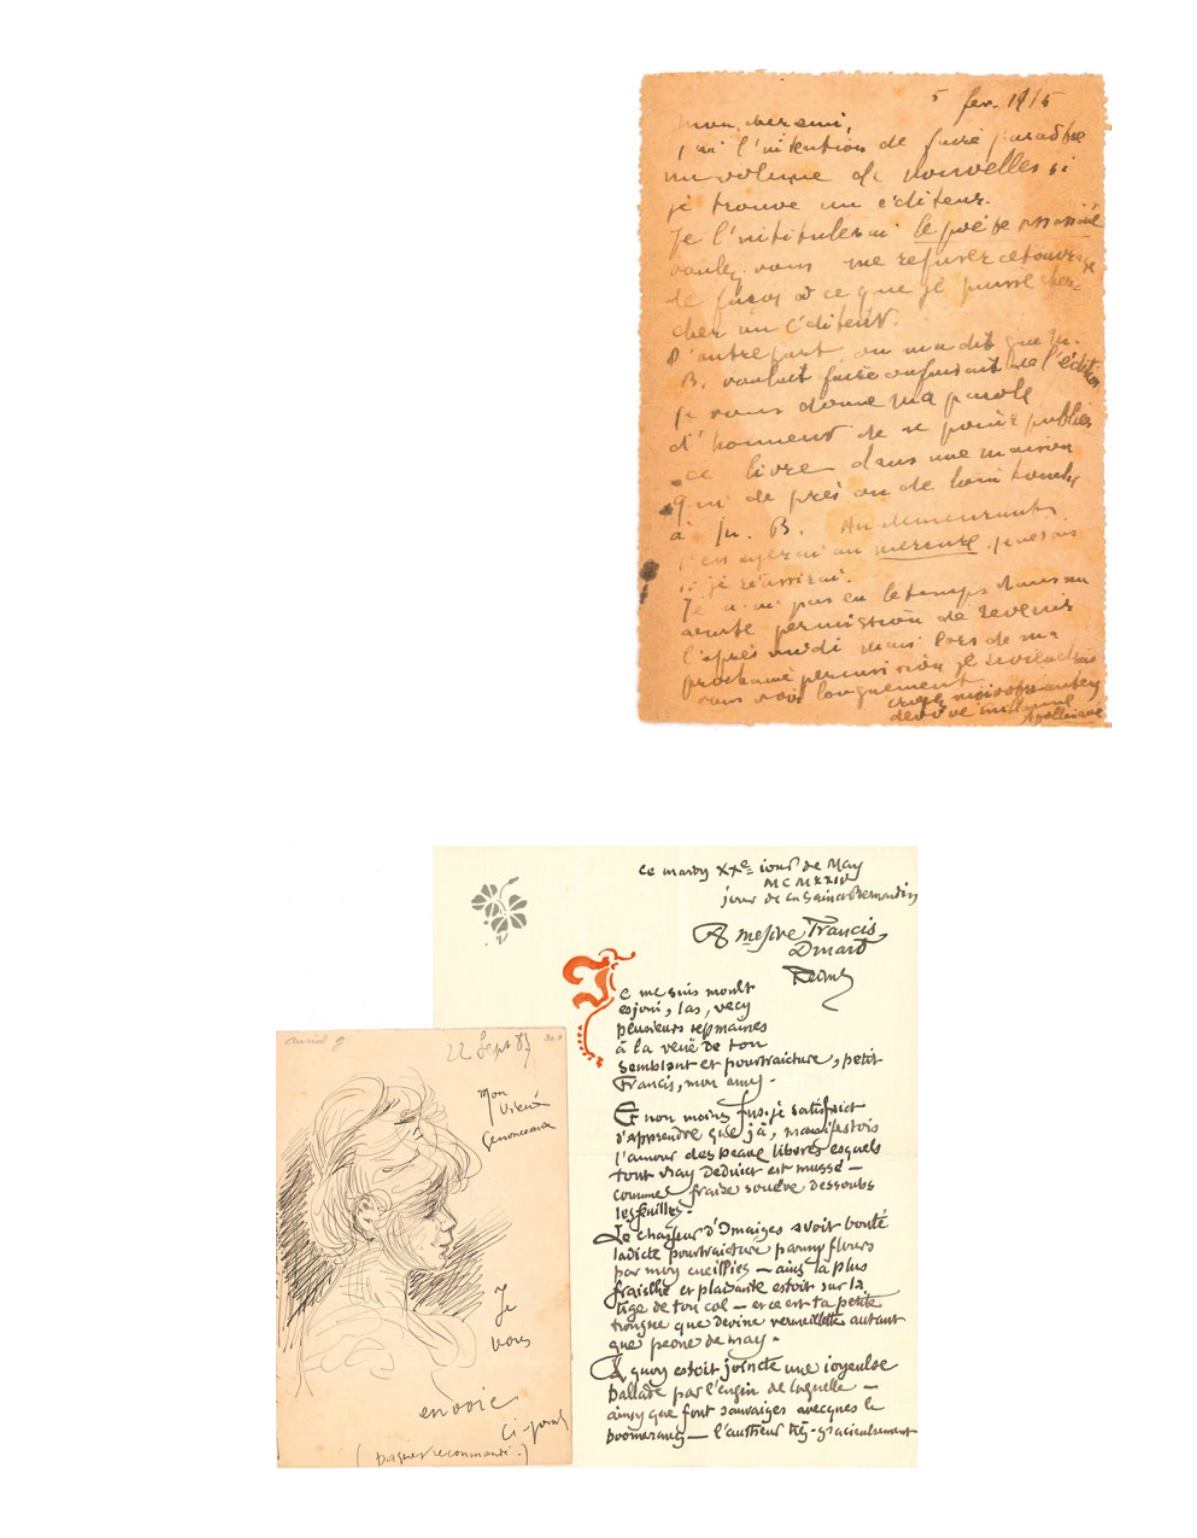 5 fev. 1915
mon cher ami,
j'ai l'intention de faire paraître
un volume de nouvelles si
je trouve un éditeur.
Je l'intitulerai le poète assassiné
voulez-vous me refuser cet ouvrage
de façon à ce que je puisse cher-
cher un éditeur.
D'autre part on m'a dit que M.
B. voulait faire de l'édition
je vous donne ma parole
d'honneur de ne point publier
ce livre dans une maison
qui de près ou de loin touche
à M. B. Au demeurant
j'essayerai au mercure. je
si je réussirai.
Je n'ai pas eu le temps dans ma
courte permission de revenir
l'après midi mais lors de ma
prochaine permission je reviendrai
vous voir longuement
croyez moi votre
dévoué Guillaume
Apollinaire
ce mardy XXe iour de May
MCMXXIV
jour de la Sainct Bernardin
A messire Francis
Dinard
Reims
Je me suis moult
esjoui, las, vecy
plusieurs sepmaines
à la veüe de ton
semblant et pourtraicture, petit
Francis, mon amy.
Et non moins fus-je satisfaict
d'apprendre que jà, manifestois
l'amour des beaux libvres esquels
tout vray deduict est mussé —
comme fraize souëve dessoubs
les feuilles.
Le chasseur d'Imaiges avoit bouté
ladicte pourtraicture parmy fleurs
par moy cueillies — ains la plus
fraische et plaisante estoit sur la
tige de ton col — et ce est ta petite
trongne que devine vermeillette autant
que peone de may.
A quoy estoit joincte une joyeulse
ballade par l'engin de laquelle —
ainsy que font sauvaiges avecques le
boomerang — l'autheur très-gracieulsement
22 Sept 87
Mon
vieux
Genonceaux
Je
vous
envoie
ci-joint
(paquet recommandé.)